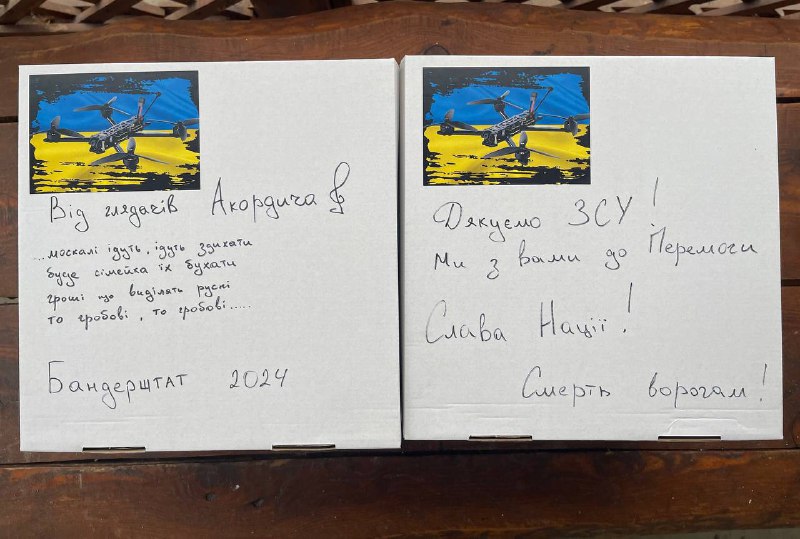 Від глядачів Акордича
...москалі ідуть, ідуть здихати
буде сімейка їх бухати
гроші що виділять рускі
то гробові, то гробові.....
Бандерштат 2024
Дякуємо ЗСУ!
Ми з вами до Перемоги
Слава Нації!
Смерть ворогам!